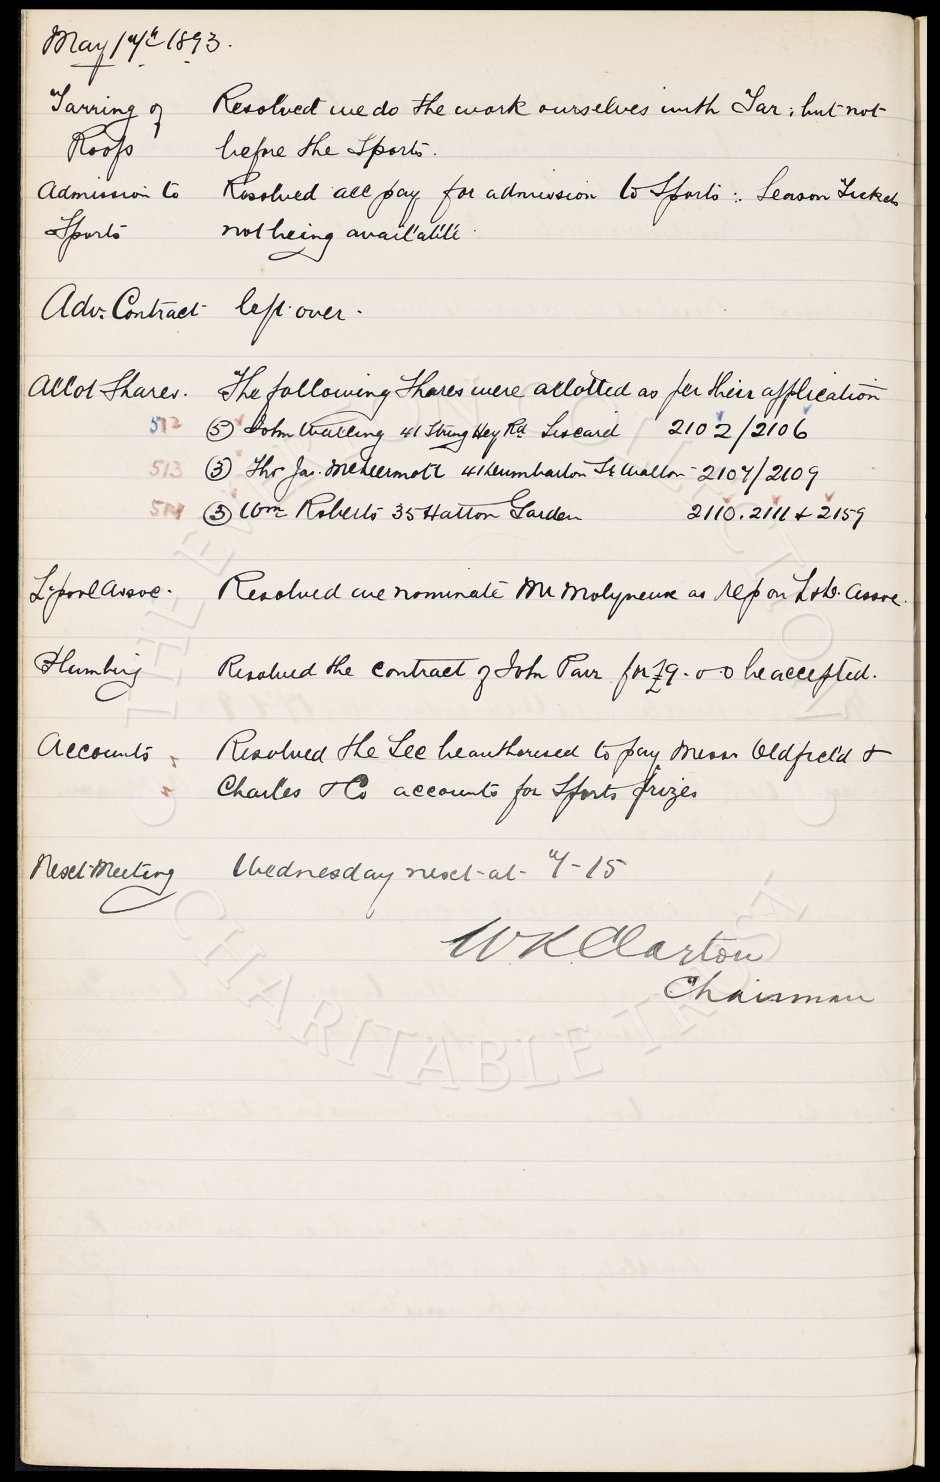 May 17th 1893.
Tarring of Roofs
Resolved we do the work ourselves with Tar: but not
before the Sports.
Admission to Sports
Resolved all pay for admission to Sports: Season Tickets
not being available
Adv. Contract left over.
Allot Shares. The following Shares were allotted as per their application
512 (5) John Watling 41 String Hey Rd Liscard 2102/2106
513 (3) Thos Jas. McDermott 41 Dumbarton St Walton 2107/2109
514 (3) Wm Roberts 35 Hatton Garden 2110. 2111 & 2159
L'pool Assoc. Resolved we nominate Mr Molyneux as rep on L & D. Assoc.
Plumbing Resolved the contract of John Parr for £9-0-0 be accepted.
Accounts Resolved the Sec be authorised to pay Messrs Oldfield &
Charles & Co accounts for Sports prizes
Next Meeting Wednesday next at 7-15
W.K. Clarton
Chairman
THE EVERTON COLLECTION
CHARITABLE TRUST